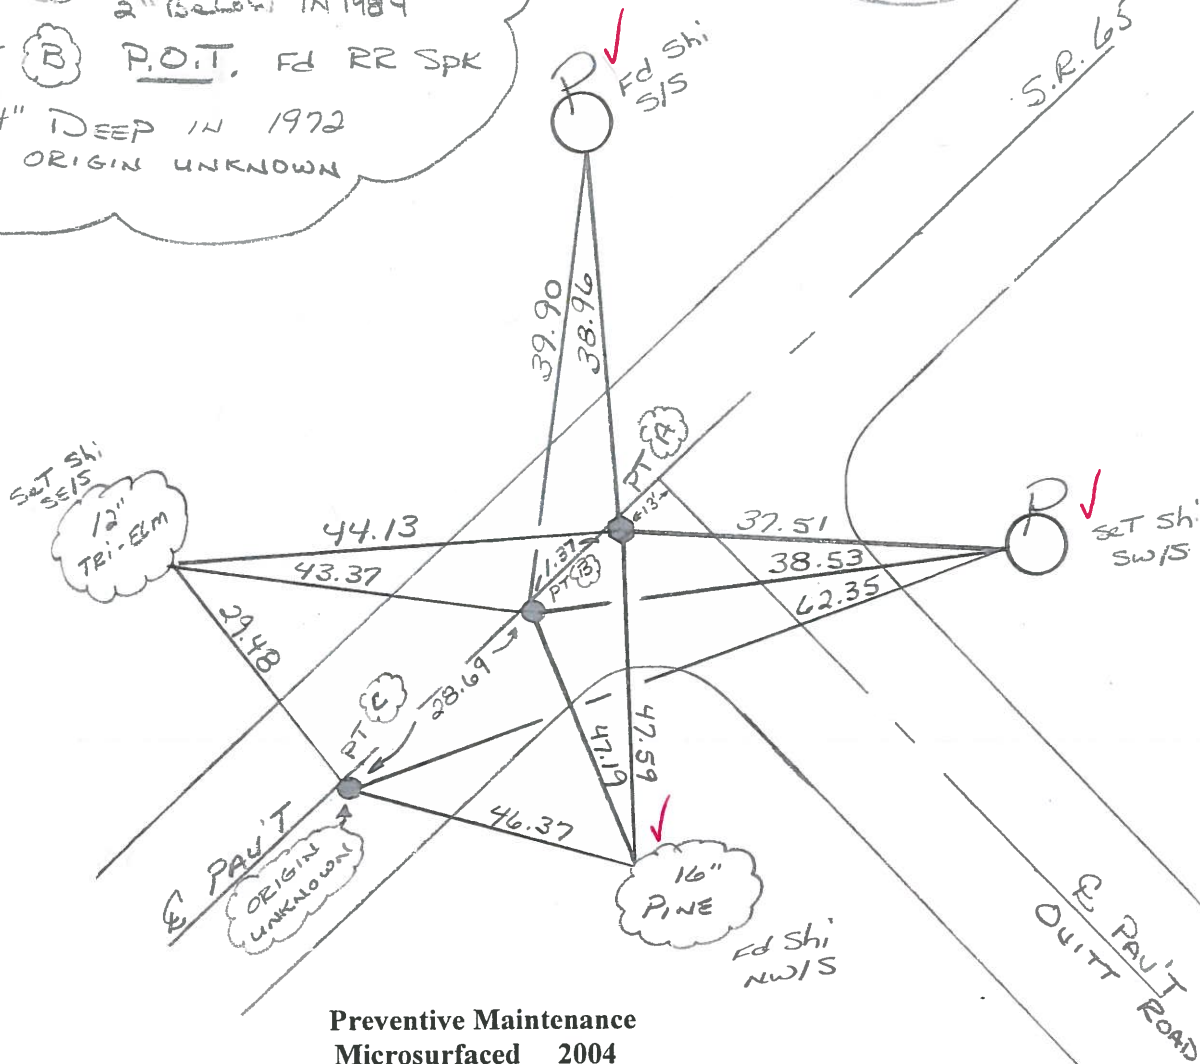 IN 1989
B P.O.T. Fd RR Spk
4" DEEP IN 1972
ORIGIN UNKNOWN
P
Fd Shi
S/S
S.R. 65
39.90
38.96
PT A
13'
SeT Shi
SE/S
12"
TRI-ELM
44.13
43.37
29.48
1.37
PT B
37.51
38.53
62.35
P
SeT Shi
SW/S
28.69
PT C
47.19
47.59
46.37
℄ PAV'T
ORIGIN
UNKNOWN
16"
PINE
Fd Shi
NW/S
℄ PAV'T
OUITT ROAD
Preventive Maintenance
Microsurfaced 2004